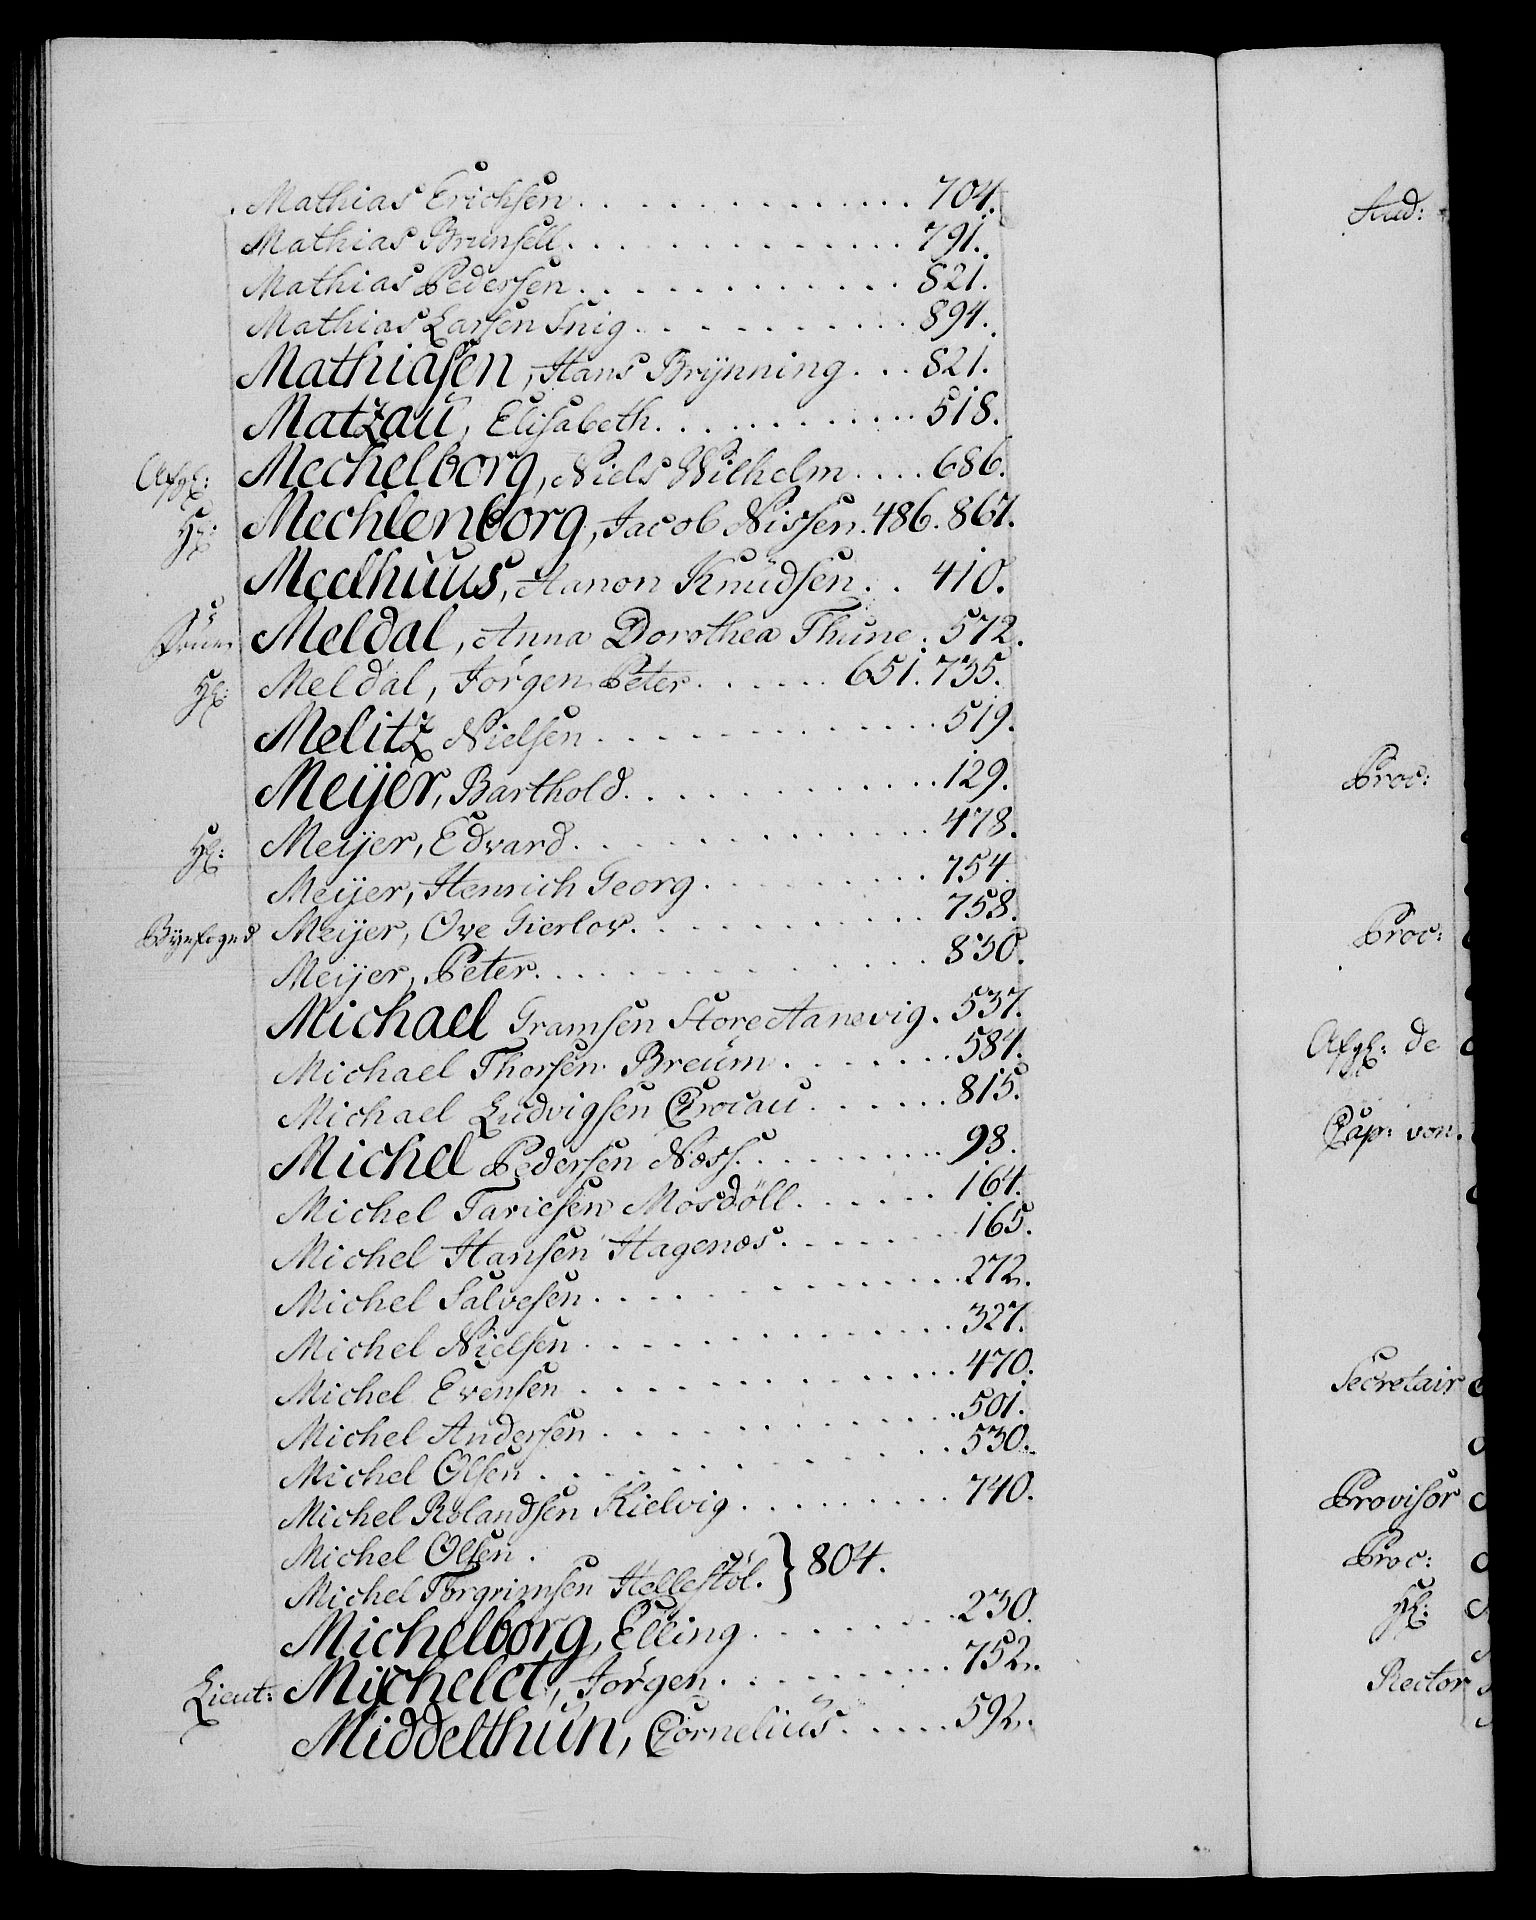 Mathias Erichsen . . . . . . . . . . . . . . 704.
Mathias Brunsell . . . . . . . . . . . . . . 791.
Mathias Pedersen . . . . . . . . . . . . . 821.
Mathias Larsen Snig . . . . . . . . . . . 894.
Mathiasen, Hans Brÿnning . . . 821.
Matzau, Elisabeth . . . . . . . . . . . 518.
Afgl: Mechelborg, Niels Wilhelm . . . . 686.
Hl: Mechlenborg, Jacob Nissen . 486. 867.
Meelhuus, Aanon Knudsen . . 410.
Fruen Meldal, Anna Dorothea Thune . 572.
Hl: Meldal, Jörgen Peter . . . . . . 651. 735.
Melitz Nielsen . . . . . . . . . . . . . 519.
Meÿer, Barthold . . . . . . . . . . . . 129.
Hl: Meÿer, Edvard . . . . . . . . . . . . . 478.
Meÿer, Henrich Georg . . . . . . . . . 754.
Bÿefoged Meÿer, Ove Gierlov . . . . . . . . . . . 758.
Meÿer, Peter . . . . . . . . . . . . . . . 830.
Michael Gramsen Store Aanevig . 537.
Michael Thorsen Breum . . . . . . . 587.
Michael Ludvigsen Crocau . . . . . . 815.
Michel Pedersen Næss . . . . . . . . . 98.
Michel Tariesen Mosdöll . . . . . . 167.
Michel Hansen Hagenæs . . . . . . . 165.
Michel Salvesen . . . . . . . . . . . . . 272.
Michel Nielsen . . . . . . . . . . . . . . 327.
Michel Evensen . . . . . . . . . . . . . . 470.
Michel Andersen . . . . . . . . . . . . . 501.
Michel Olsen . . . . . . . . . . . . . . . 530.
Michel Rolandsen Kielvig . . . . . . . . 740.
Michel Olsen .
Michel Torgrimsen Hellestöl. } 804.
Michelborg, Elling . . . . . . . . 230.
Lieut: Michelet, Jörgen . . . . . . . . . 752.
Middelthun, Cornelius . . . . . 592.
Aud:
Proc:
Proc:
Afgl: de
Cap: von.
Secretair
Provisor
Proc:
Hl:
Rector